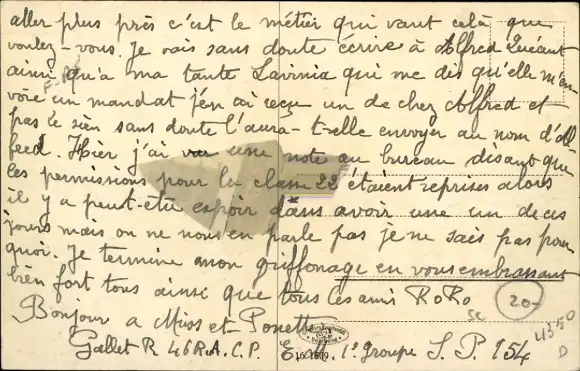 aller plus près c'est le métier qui vaut celà que
voulez-vous. Je vais sans doute écrire à Alfred Quéant
ainsi qu'à ma tante Lavinia qui me dis qu'elle m'en-
voie un mandat j'en ai reçu un de chez Alfred et
pas le sien sans doute l'aura-t-elle envoyer au nom d'Al
fred. Hier j'ai vu une note au bureau disant que
les permissions pour la classe 22 étaient reprises alors
il y a peut-être espoir dans avoir une un de ces
jours mais on ne nous en parle pas je ne sais pas pour
quoi. Je termine mon griffonage en vous embrassant
bien fort tous ainsi que tous les amis RoRo
20-
Bonjour a Miss et Ponette
4350
D
Gallet R 46 R.A.C.P. 1º Groupe S.P. 154